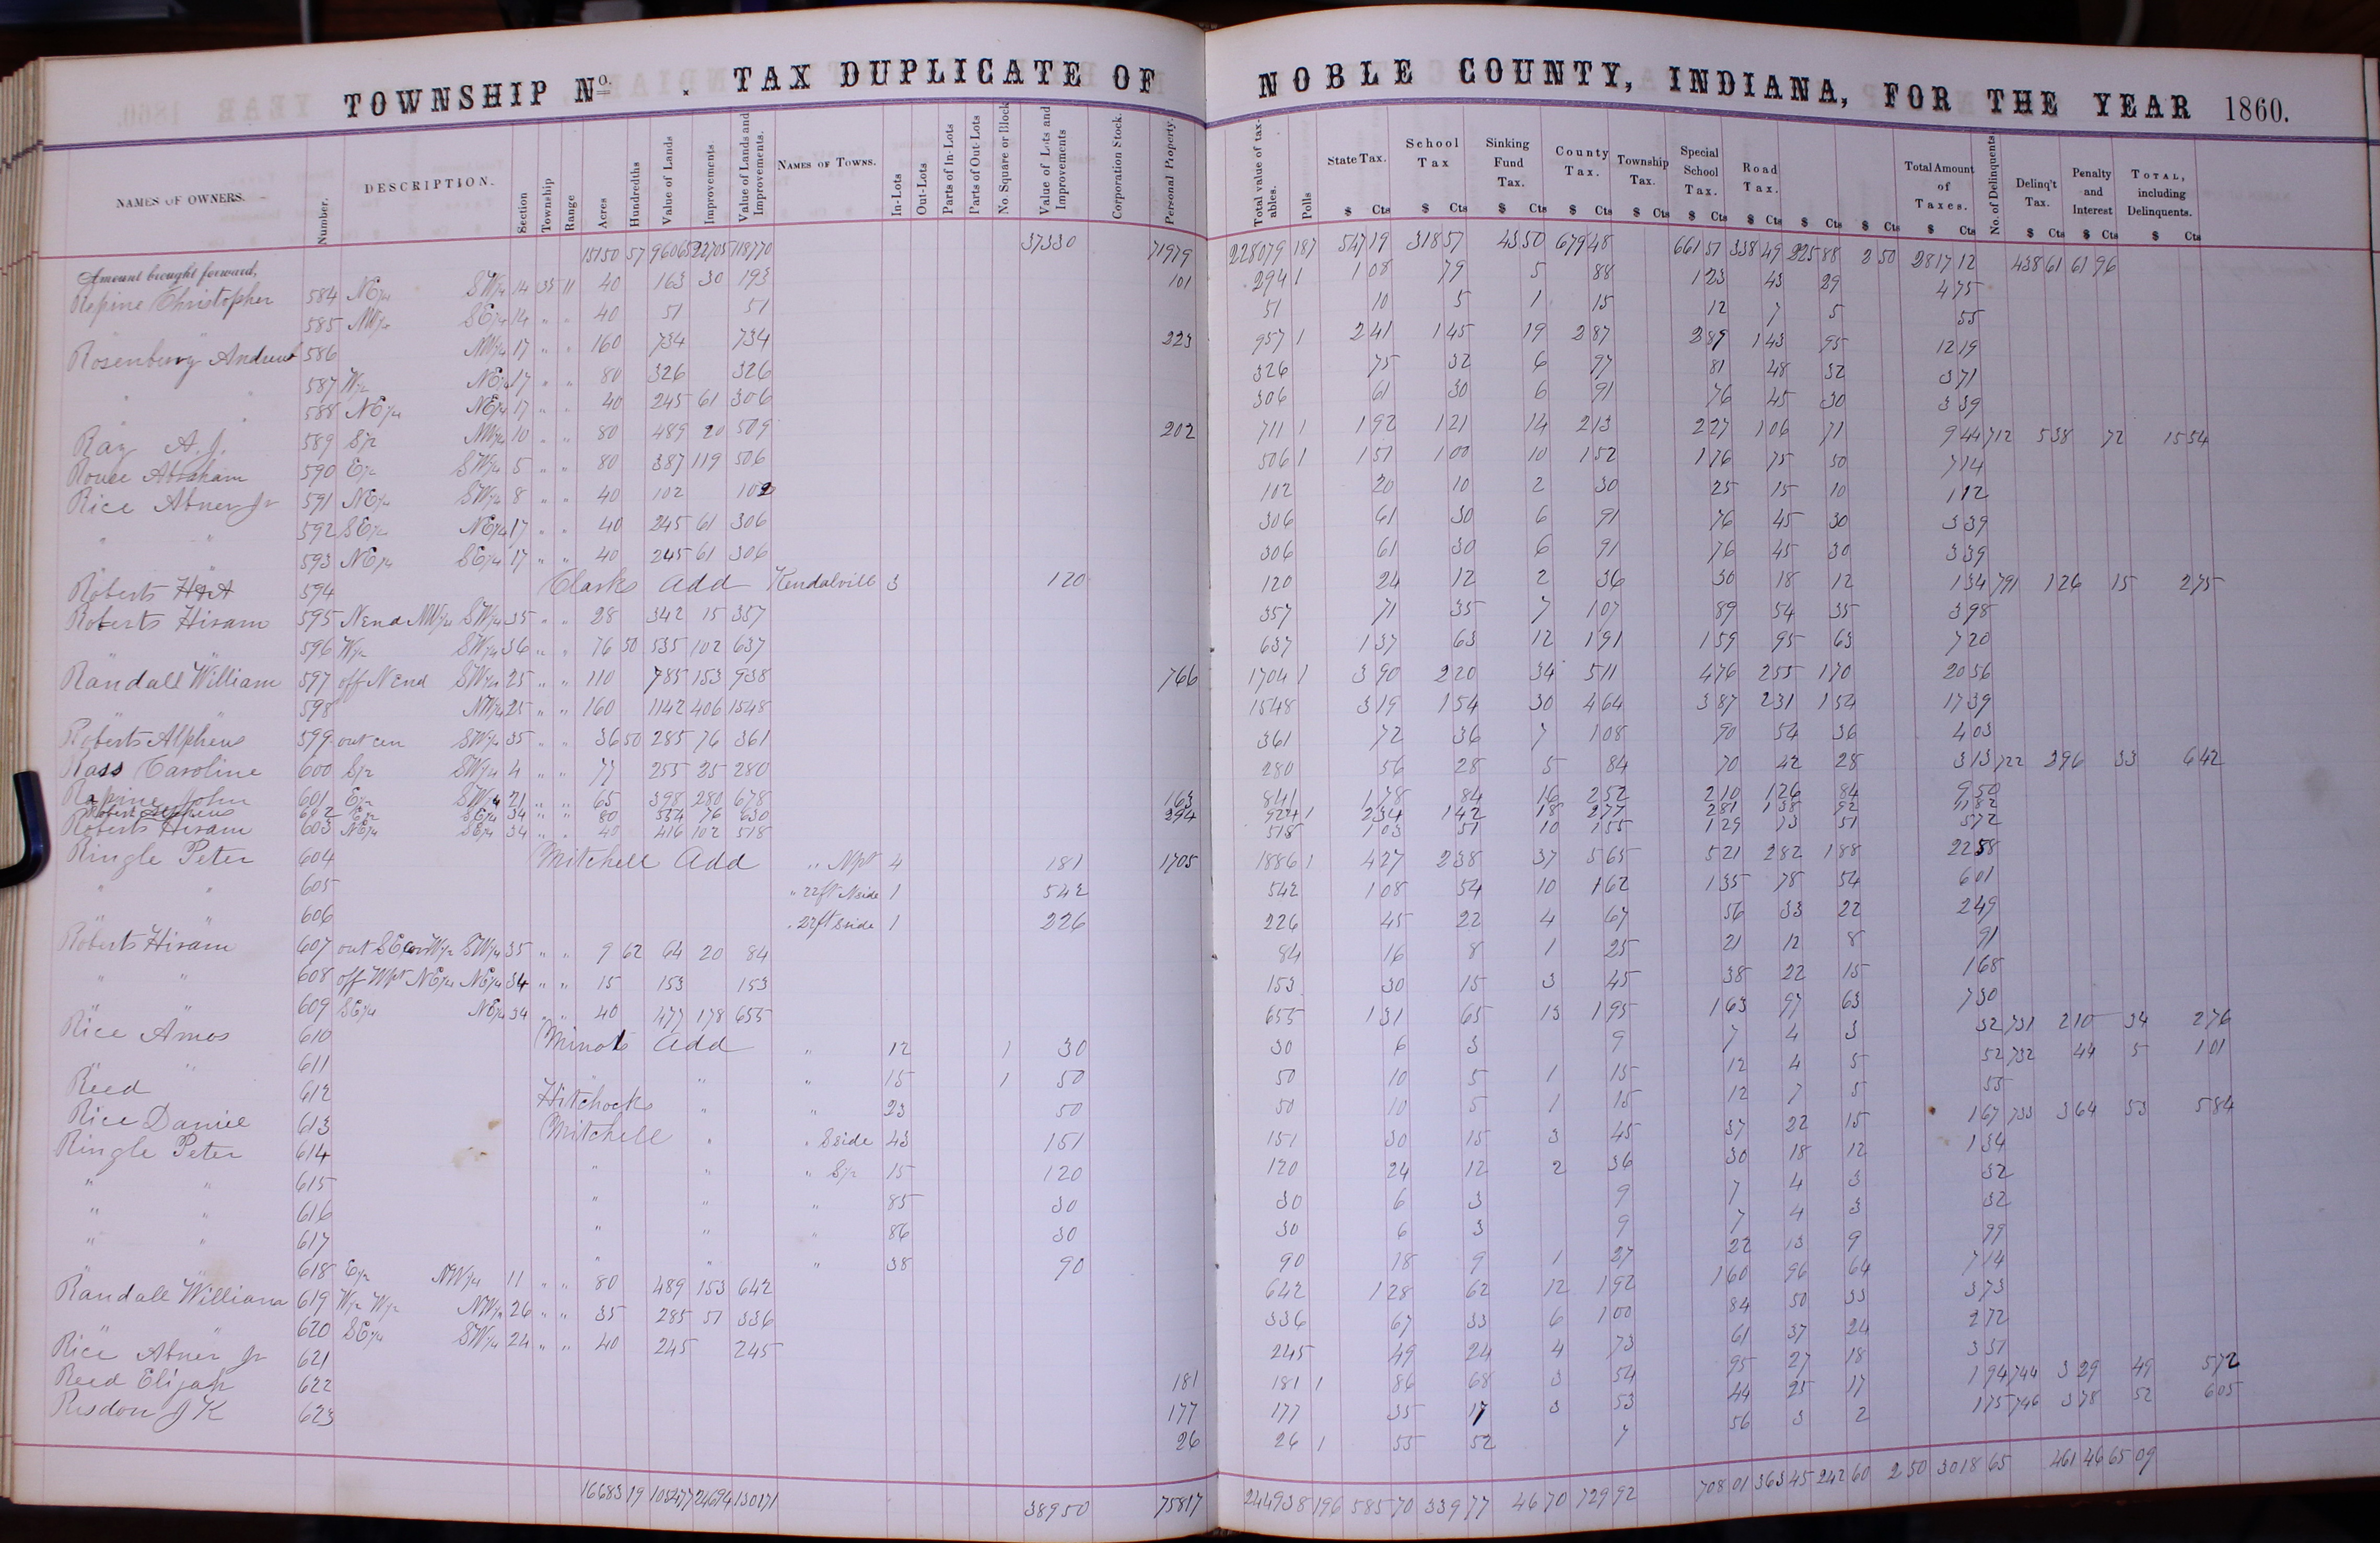 TOWNSHIP No. . TAX DUPLICATE OF NOBLE COUNTY, INDIANA, FOR THE YEAR 1860.
NAMES OF OWNERS. Number. DESCRIPTION. Section Township Range Acres Hundredths Value of Lands Improvements. Value of Lands and Improvements. NAMES OF TOWNS. In-Lots Out-Lots Parts of In-Lots Parts of Out-Lots No. Square or Block Value of Lots and Improvements Corporation Stock. Personal Property. Total value of taxables. Polls State Tax. School Tax Sinking Fund Tax. County Tax. Township Tax. Special School Tax. Road Tax. Total Amount of Taxes. No. of Delinquents Delinq't Tax. Penalty and Interest TOTAL, including Delinquents.
$ Cts $ Cts $ Cts $ Cts $ Cts $ Cts $ Cts $ Cts $ Cts $ Cts $ Cts $ Cts $ Cts
Amount brought forward, 15150 57 96065 22705 118770 37330 71979 228079 187 547 19 318 57 43 50 679 48 661 51 338 49 225 88 2 50 2817 12 438 61 61 96
Repine Christopher 584 NE1/4 SW1/4 14 35 11 40 163 30 193 101 294 1 1 08 79 5 88 1 23 43 29 4 75
" " 585 NW1/4 SE1/4 14 " " 40 51 51 51 10 5 1 15 12 7 5 55
Rosenbury Andrew 586 NW1/4 17 " " 160 734 734 223 957 1 2 41 1 45 19 2 87 2 89 1 43 95 12 19
587 W1/2 NE1/4 17 " " 80 326 326 326 75 32 6 97 81 48 32 3 71
" " 588 NE1/4 NE1/4 17 " " 40 245 61 306 306 61 30 6 91 76 45 30 3 39
Ray A. J. 589 S1/2 NW1/4 10 " " 80 489 20 509 202 711 1 1 92 1 21 14 2 13 2 27 1 06 71 9 44 712 5 38 72 15 54
Rouce Abraham 590 E1/2 SW1/4 5 " " 80 387 119 506 506 1 1 51 1 00 10 1 52 1 76 75 50 7 14
Rice Abner Jr 591 NE1/4 SW1/4 8 " " 40 102 102 102 20 10 2 30 25 15 10 1 12
592 SE1/4 NE1/4 17 " " 40 245 61 306 306 61 30 6 91 76 45 30 3 39
" " 593 NE1/4 SE1/4 17 " " 40 245 61 306 306 61 30 6 91 76 45 30 3 39
Roberts H&A 594 Clarks Add Kendalvill 3 120 120 24 12 2 36 30 18 12 1 34 791 1 26 15 2 75
Roberts Hiram 595 N end NW1/4 SW1/4 35 " " 28 342 15 357 357 71 35 7 1 07 89 54 35 3 98
" " 596 W1/2 SW1/4 36 " " 76 50 535 102 637 637 1 37 63 12 1 91 1 59 95 63 7 20
Randall William 597 off N end SW1/4 25 " " 110 785 153 938 766 1704 1 3 90 2 20 34 5 11 4 76 2 55 1 70 20 56
598 NW1/4 25 " " 160 1142 406 1548 1548 3 19 1 54 30 4 64 3 87 2 31 1 54 17 39
Roberts Alpheus 599 out cen SW1/4 35 " " 36 50 285 76 361 361 72 36 7 1 08 90 54 36 4 03
Rass Caroline 600 S1/2 SW1/4 4 " " 77 255 25 280 280 56 28 5 84 70 42 28 3 13 722 2 96 33 6 42
Rapine John 601 E1/2 SW1/4 21 " " 65 398 280 678 163 841 1 78 84 16 2 52 2 10 1 26 84 9 50
Robert Alpheus 602 E1/2 SE1/4 34 " " 80 554 76 630 294 924 1 2 34 1 42 18 2 77 2 81 1 38 92 11 82
Roberts Hiram 603 NE1/4 SE1/4 34 " " 40 416 102 518 518 1 03 51 10 1 55 1 29 73 51 5 72
Ringle Peter 604 Mitchell Add " Npt 4 181 1705 1886 1 4 27 2 38 37 5 65 5 21 2 82 1 88 22 58
" " 605 " 22ft N side 1 542 542 1 08 54 10 1 62 1 35 78 54 6 01
" " 606 " 22ft S side 1 226 226 45 22 4 67 56 33 22 2 49
Roberts Hiram 607 out SE cor W1/2 SW1/4 35 " " 9 62 64 20 84 84 16 8 1 25 21 12 8 91
" " 608 off Wpt NE1/4 NE1/4 34 " " 15 153 153 153 30 15 3 45 38 22 15 1 68
" " 609 SE1/4 NE1/4 34 " " 40 477 178 655 655 1 31 65 13 1 95 1 63 97 63 7 30
Rice Amos 610 Minots Add " 12 1 30 30 6 3 9 7 4 3 32 731 2 10 34 2 76
" 611 " " 15 1 50 50 10 5 1 15 12 4 5 52 732 44 5 1 01
Reed 612 Hitchocks " " 23 50 50 10 5 1 15 12 7 5 55
Rice Daniel 613 Mitchell " " S side 43 151 151 30 15 3 45 37 22 15 1 67 733 3 64 53 5 84
Ringle Peter 614 " " " S1/2 15 120 120 24 12 2 36 30 18 12 1 34
" " 615 " " " 85 30 30 6 3 9 7 4 3 32
" " 616 " " " 86 30 30 6 3 9 7 4 3 32
" " 617 " " " 38 90 90 18 9 1 27 22 13 9 99
" " 618 E1/2 NW1/4 11 " " 80 489 153 642 642 1 28 62 12 1 92 1 60 96 64 7 14
Randall William 619 W1/2 W1/2 NW1/4 26 " " 35 285 51 336 336 67 33 6 1 00 84 50 33 3 73
" " 620 SE1/4 SW1/4 24 " " 40 245 245 245 49 24 4 73 61 37 24 2 72
Rice Abner Jr 621 181 181 1 86 68 3 54 95 27 18 3 51
Reed Elijah 622 177 177 35 17 3 53 44 25 17 1 94 744 3 29 49 5 72
Risdon J K 623 26 26 1 55 52 7 56 3 2 1 75 746 3 78 52 6 05
16683 19 105477 24694 130171 38950 75817 244938 196 585 70 339 77 46 70 729 92 708 01 363 45 242 60 2 50 3018 65 461 46 65 09